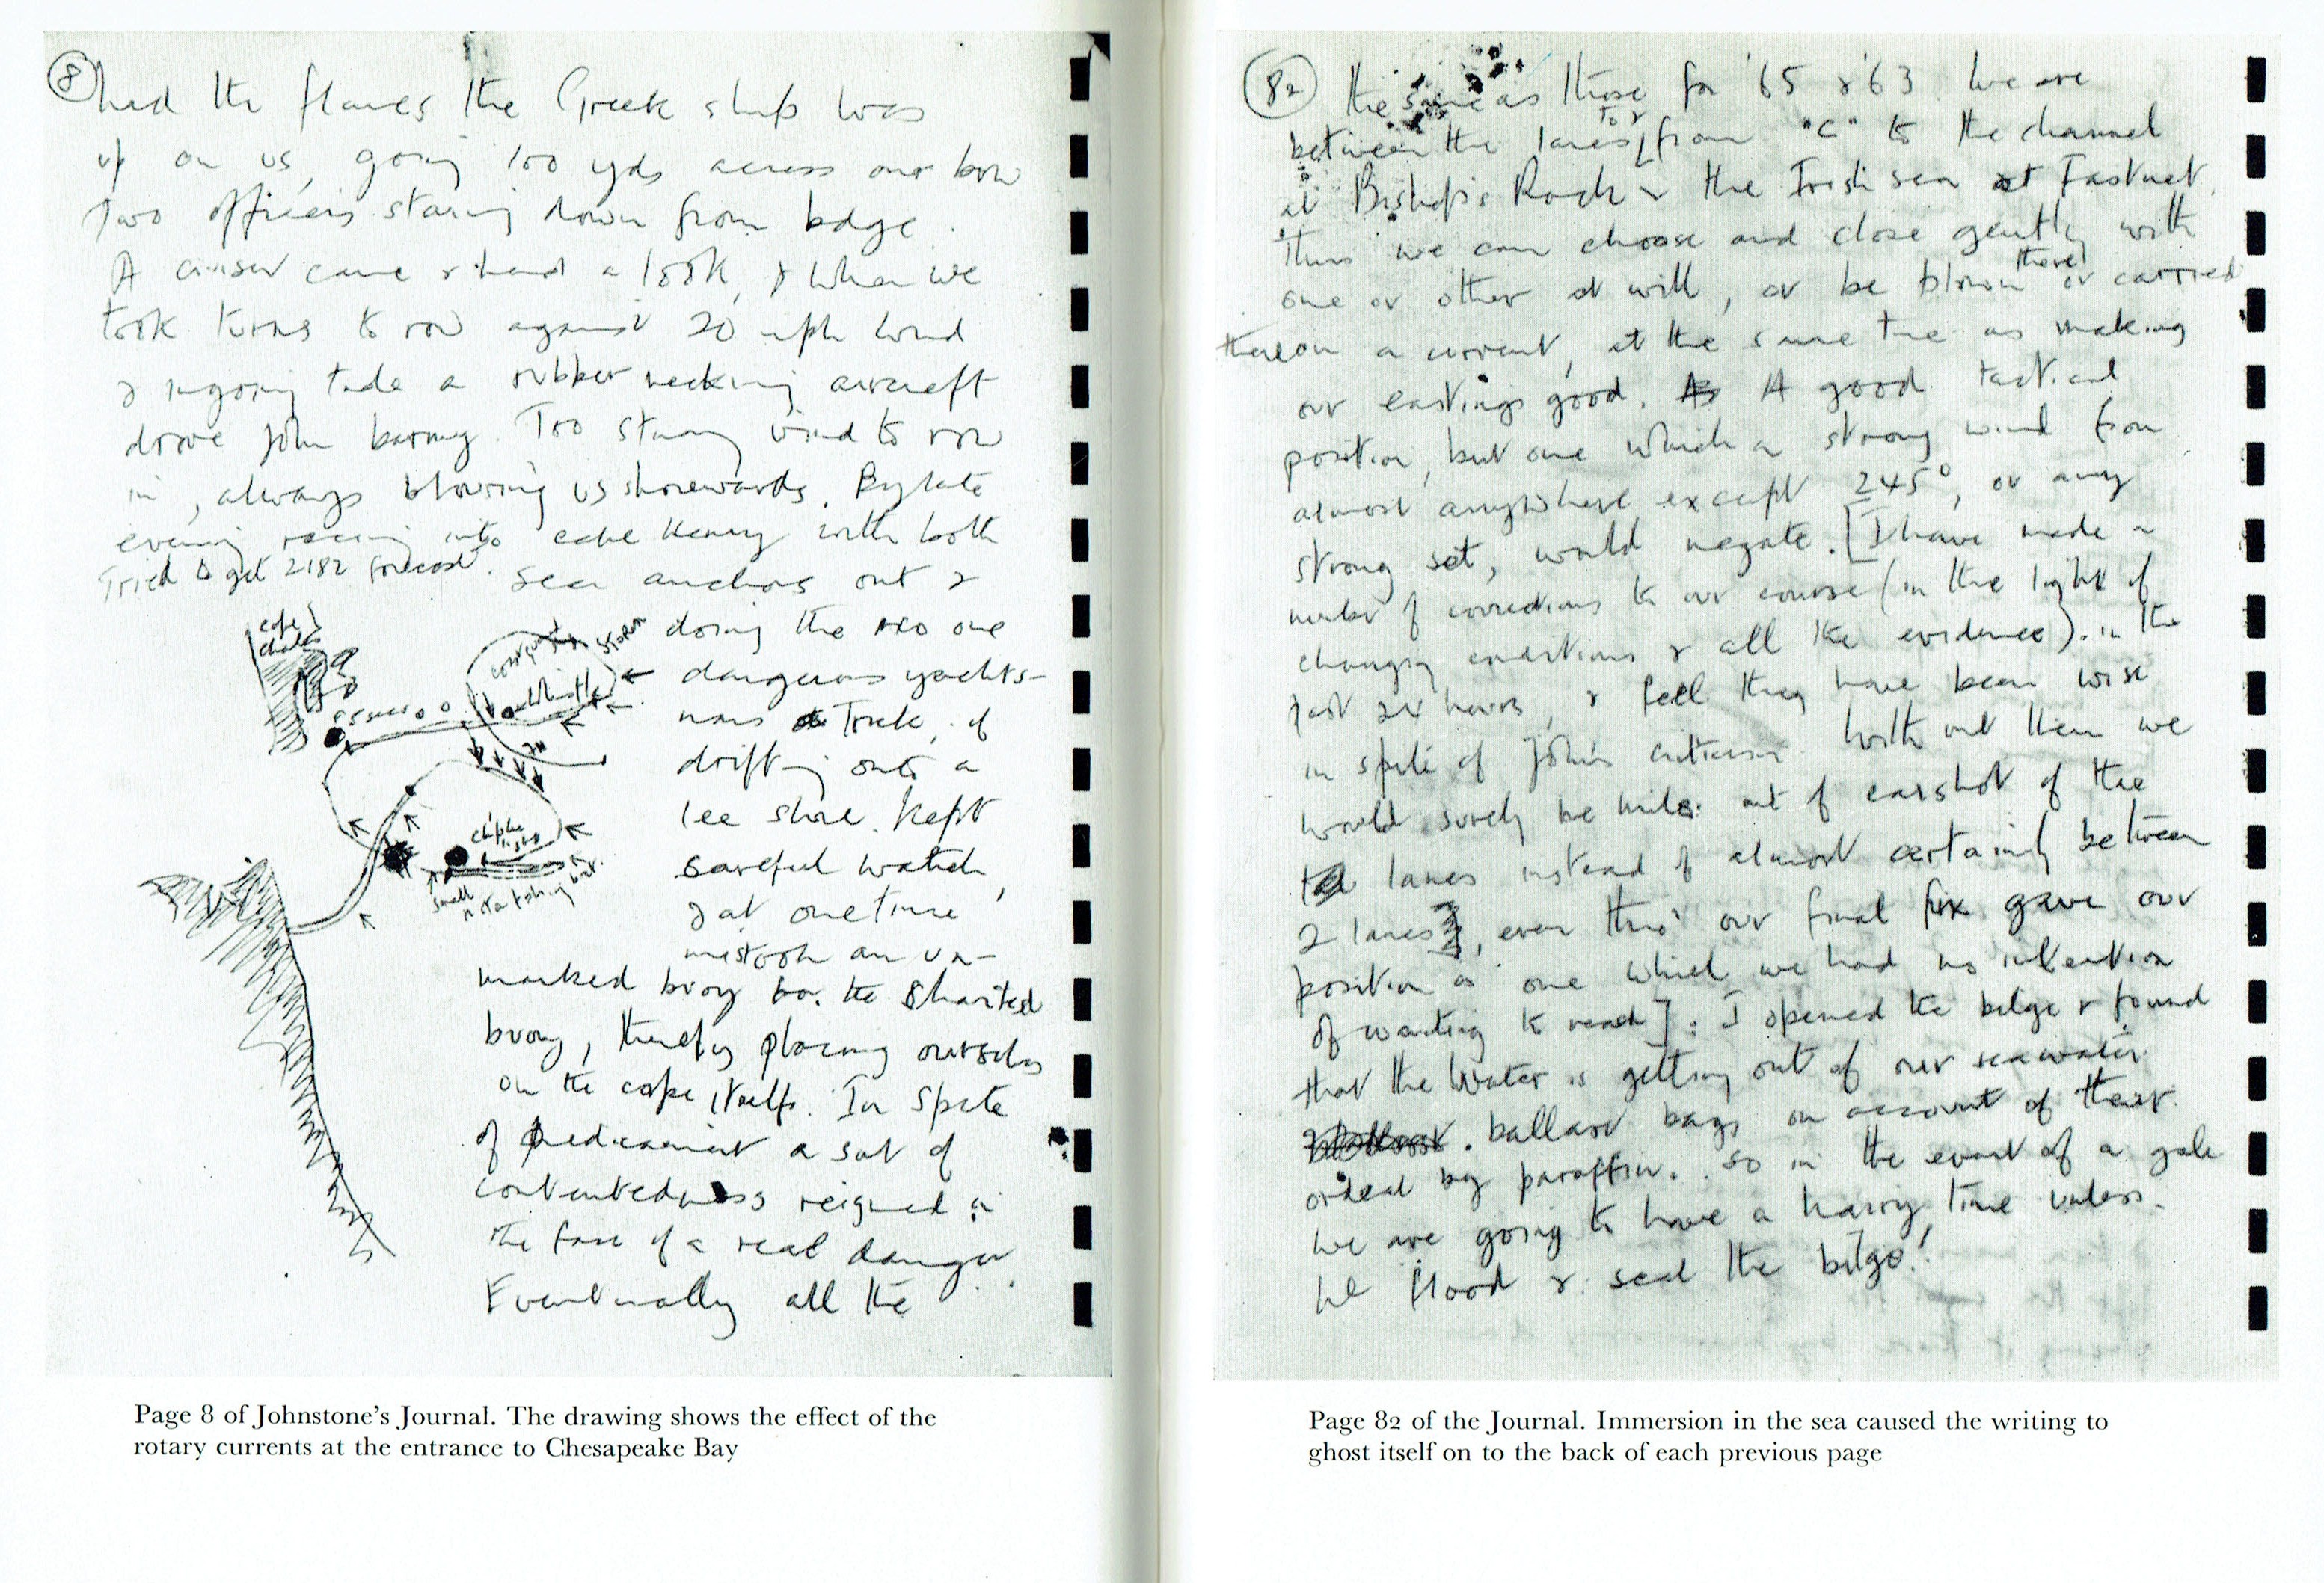 8
had the flares the Greek ship was
up on us, going 100 yds across our bow
two officers staring down from bdge.
A cruiser came & had a look, & when we
took turns to row against 20 mph wind
& ingoing tide a rubber necking aircraft
drove John barmy. Too strong wind to row
in, always blowing us shorewards. By late
evening racing into cape Henry with both
Tried to get 2182 forecast. sea anchors out &
cape
doing the no one
dangerous yachts-
mans Trick, of
drifting onto a
lee shore. Kept
careful watch,
& at one time
mistook an un-
marked buoy for the charted
buoy, thereby placing ourselves
on the cape itself. In spite
of predicament a sort of
contentedness reigned in
the face of a real danger.
Eventually all the
STORM
small
Page 8 of Johnstone's Journal. The drawing shows the effect of the
rotary currents at the entrance to Chesapeake Bay
82
the same as those for '65 & '63 we are
between the lanes to & from "C" to the channel
at Bishop's Rock & the Irish sea at Fastnet.
Thus we can choose and close gently with
one or other at will, or be blown there or carried
there on a current, at the same time as making
our eastings good. As A good tactical
position, but one which a strong wind from
almost anywhere except 245°, or any
strong set, would negate. [I have made a
number of corrections to our course (in the light of
changing conditions & all the evidence). in the
last 24 hours, & feel they have been wise
in spite of John's criticism. With out them we
would surely be miles out of earshot of the
lanes instead of almost certainly between
2 lanes], even tho' our final fix gave our
position as one which we had no intention
of wanting to reach]: I opened the bilge & found
that the water is getting out of our seawater
ballast bags on account of their
ordeal by paraffin. So in the event of a gale
we are going to have a hairy time unless
we flood & seal the bilge!
Page 82 of the Journal. Immersion in the sea caused the writing to
ghost itself on to the back of each previous page